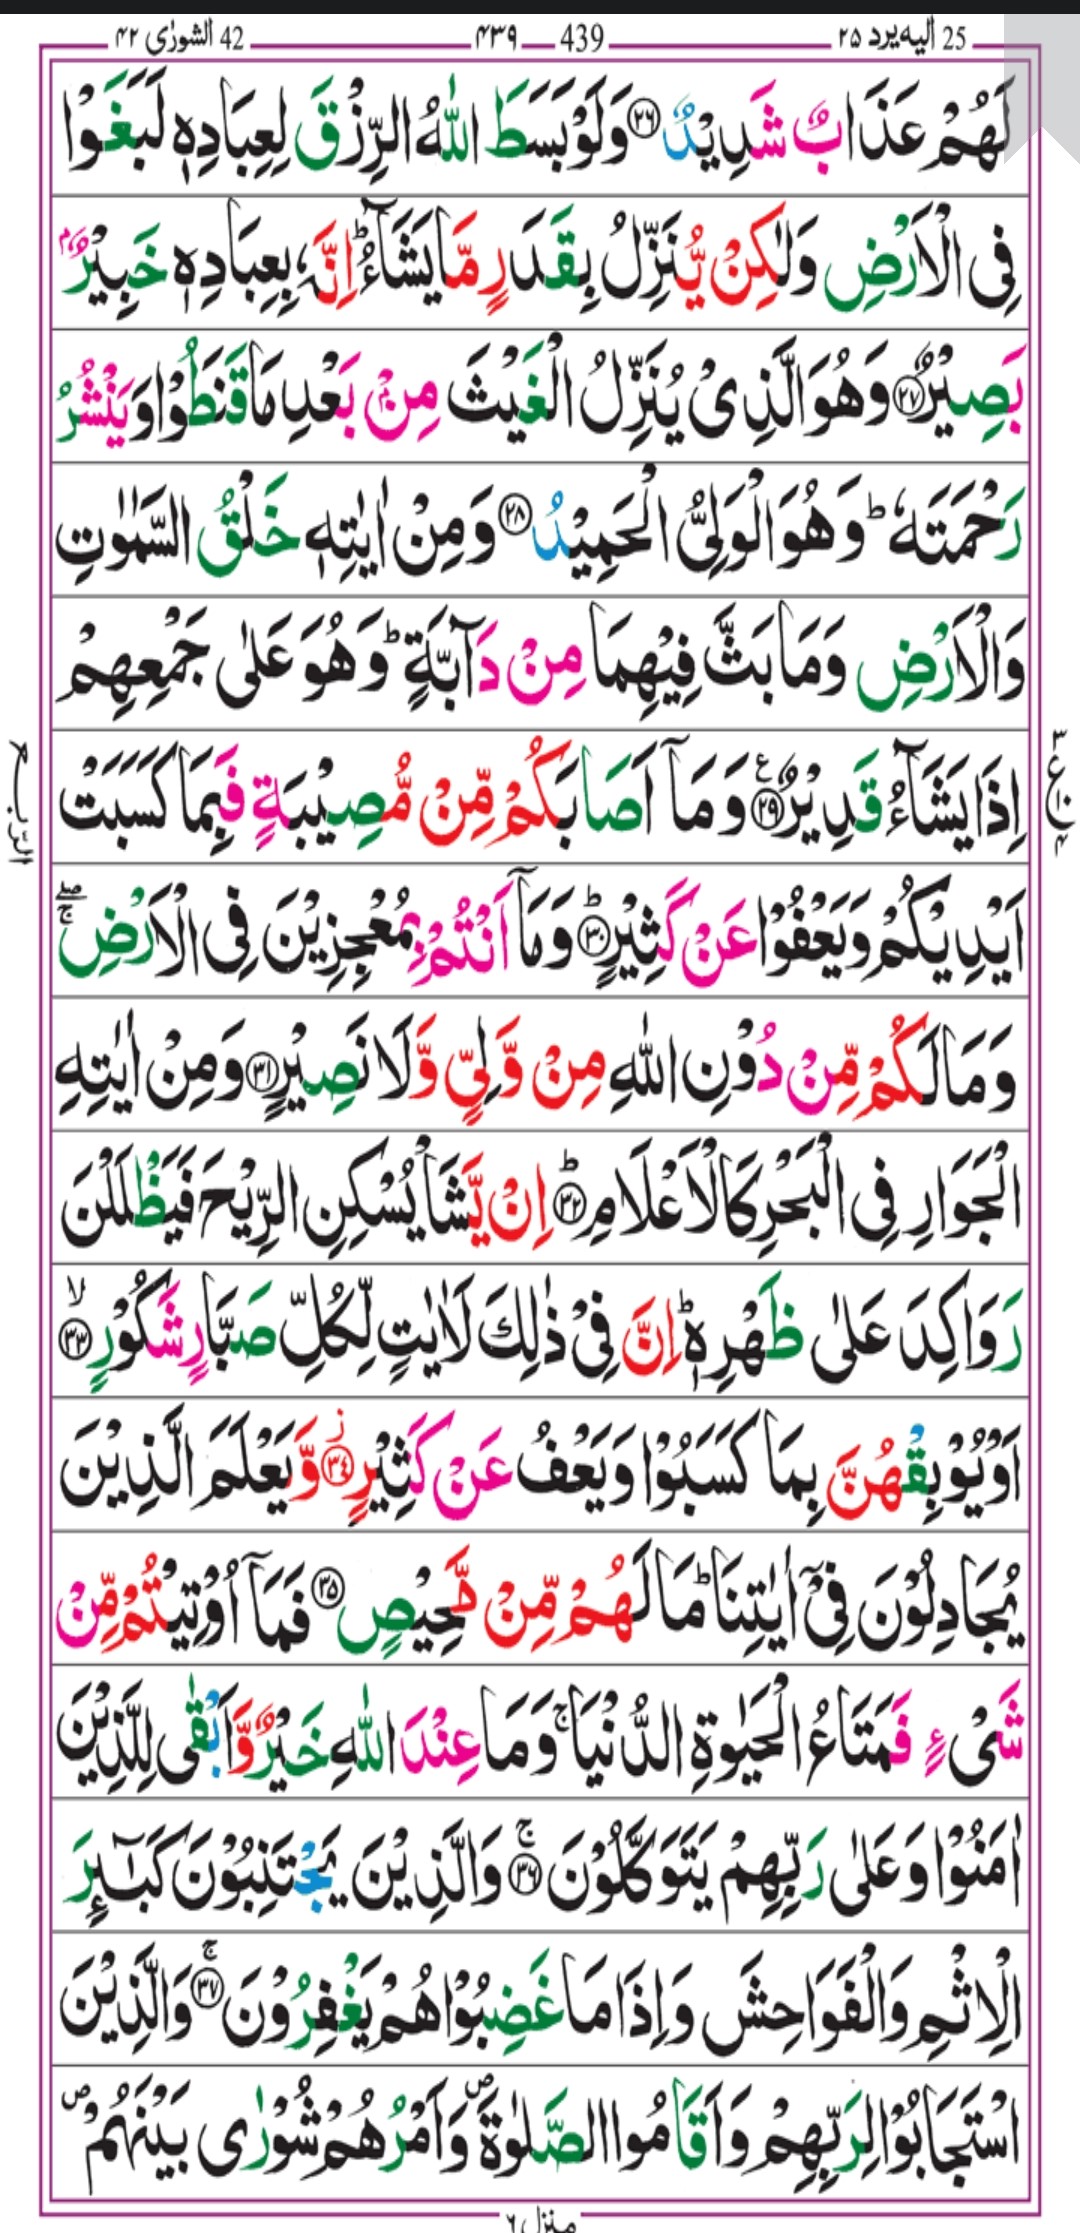 25 الیه یرد ۲۵ 439 ۴۳۹ 42 الشورٰی ۴۲
لَهُمْ عَذَابٌ شَدِيْدٌ ﴿۲۶﴾ وَلَوْ بَسَطَ اللّٰهُ الرِّزْقَ لِعِبَادِهٖ لَبَغَوْا
فِى الْاَرْضِ وَلٰكِنْ يُّنَزِّلُ بِقَدَرٍ مَّا يَشَآءُ ؕ اِنَّهٗ بِعِبَادِهٖ خَبِيْرٌۢ
بَصِيْرٌ ﴿۲۷﴾ وَهُوَ الَّذِىْ يُنَزِّلُ الْغَيْثَ مِنْۢ بَعْدِ مَا قَنَطُوْا وَيَنْشُرُ
رَحْمَتَهٗ ؕ وَهُوَ الْوَلِىُّ الْحَمِيْدُ ﴿۲۸﴾ وَمِنْ اٰيٰتِهٖ خَلْقُ السَّمٰوٰتِ
وَالْاَرْضِ وَمَا بَثَّ فِيْهِمَا مِنْ دَآبَّةٍ ؕ وَهُوَ عَلٰى جَمْعِهِمْ
اِذَا يَشَآءُ قَدِيْرٌ ﴿۲۹﴾ ع وَمَاۤ اَصَابَكُمْ مِّنْ مُّصِيْبَةٍ فَبِمَا كَسَبَتْ
اَيْدِيْكُمْ وَيَعْفُوْا عَنْ كَثِيْرٍ ؕ ﴿۳۰﴾ وَمَاۤ اَنْتُمْ بِمُعْجِزِيْنَ فِى الْاَرْضِ ۖۚ
وَمَا لَكُمْ مِّنْ دُوْنِ اللّٰهِ مِنْ وَّلِىٍّ وَّلَا نَصِيْرٍ ﴿۳۱﴾ وَمِنْ اٰيٰتِهِ
الْجَوَارِ فِى الْبَحْرِ كَالْاَعْلَامِ ؕ ﴿۳۲﴾ اِنْ يَّشَاْ يُسْكِنِ الرِّيْحَ فَيَظْلَلْنَ
رَوَاكِدَ عَلٰى ظَهْرِهٖ ؕ اِنَّ فِىْ ذٰلِكَ لَاٰيٰتٍ لِّكُلِّ صَبَّارٍ شَكُوْرٍ ۙ ﴿۳۳﴾
اَوْ يُوْبِقْهُنَّ بِمَا كَسَبُوْا وَيَعْفُ عَنْ كَثِيْرٍ ز ﴿۳۴﴾ وَّيَعْلَمَ الَّذِيْنَ
يُجَادِلُوْنَ فِىْۤ اٰيٰتِنَا ؕ مَا لَهُمْ مِّنْ مَّحِيْصٍ ﴿۳۵﴾ فَمَاۤ اُوْتِيْتُمْ مِّنْ
شَىْءٍ فَمَتَاعُ الْحَيٰوةِ الدُّنْيَا ۚ وَمَا عِنْدَ اللّٰهِ خَيْرٌ وَّاَبْقٰى لِلَّذِيْنَ
اٰمَنُوْا وَعَلٰى رَبِّهِمْ يَتَوَكَّلُوْنَ ۚ ﴿۳۶﴾ وَالَّذِيْنَ يَجْتَنِبُوْنَ كَبٰٓئِرَ
الْاِثْمِ وَالْفَوَاحِشَ وَاِذَا مَا غَضِبُوْا هُمْ يَغْفِرُوْنَ ۚ ﴿۳۷﴾ وَالَّذِيْنَ
اسْتَجَابُوْا لِرَبِّهِمْ وَاَقَامُوا الصَّلٰوةَ ص وَاَمْرُهُمْ شُوْرٰى بَيْنَهُمْ ص
الربع
۳ ع ۱۰ ۴
منزل ۶